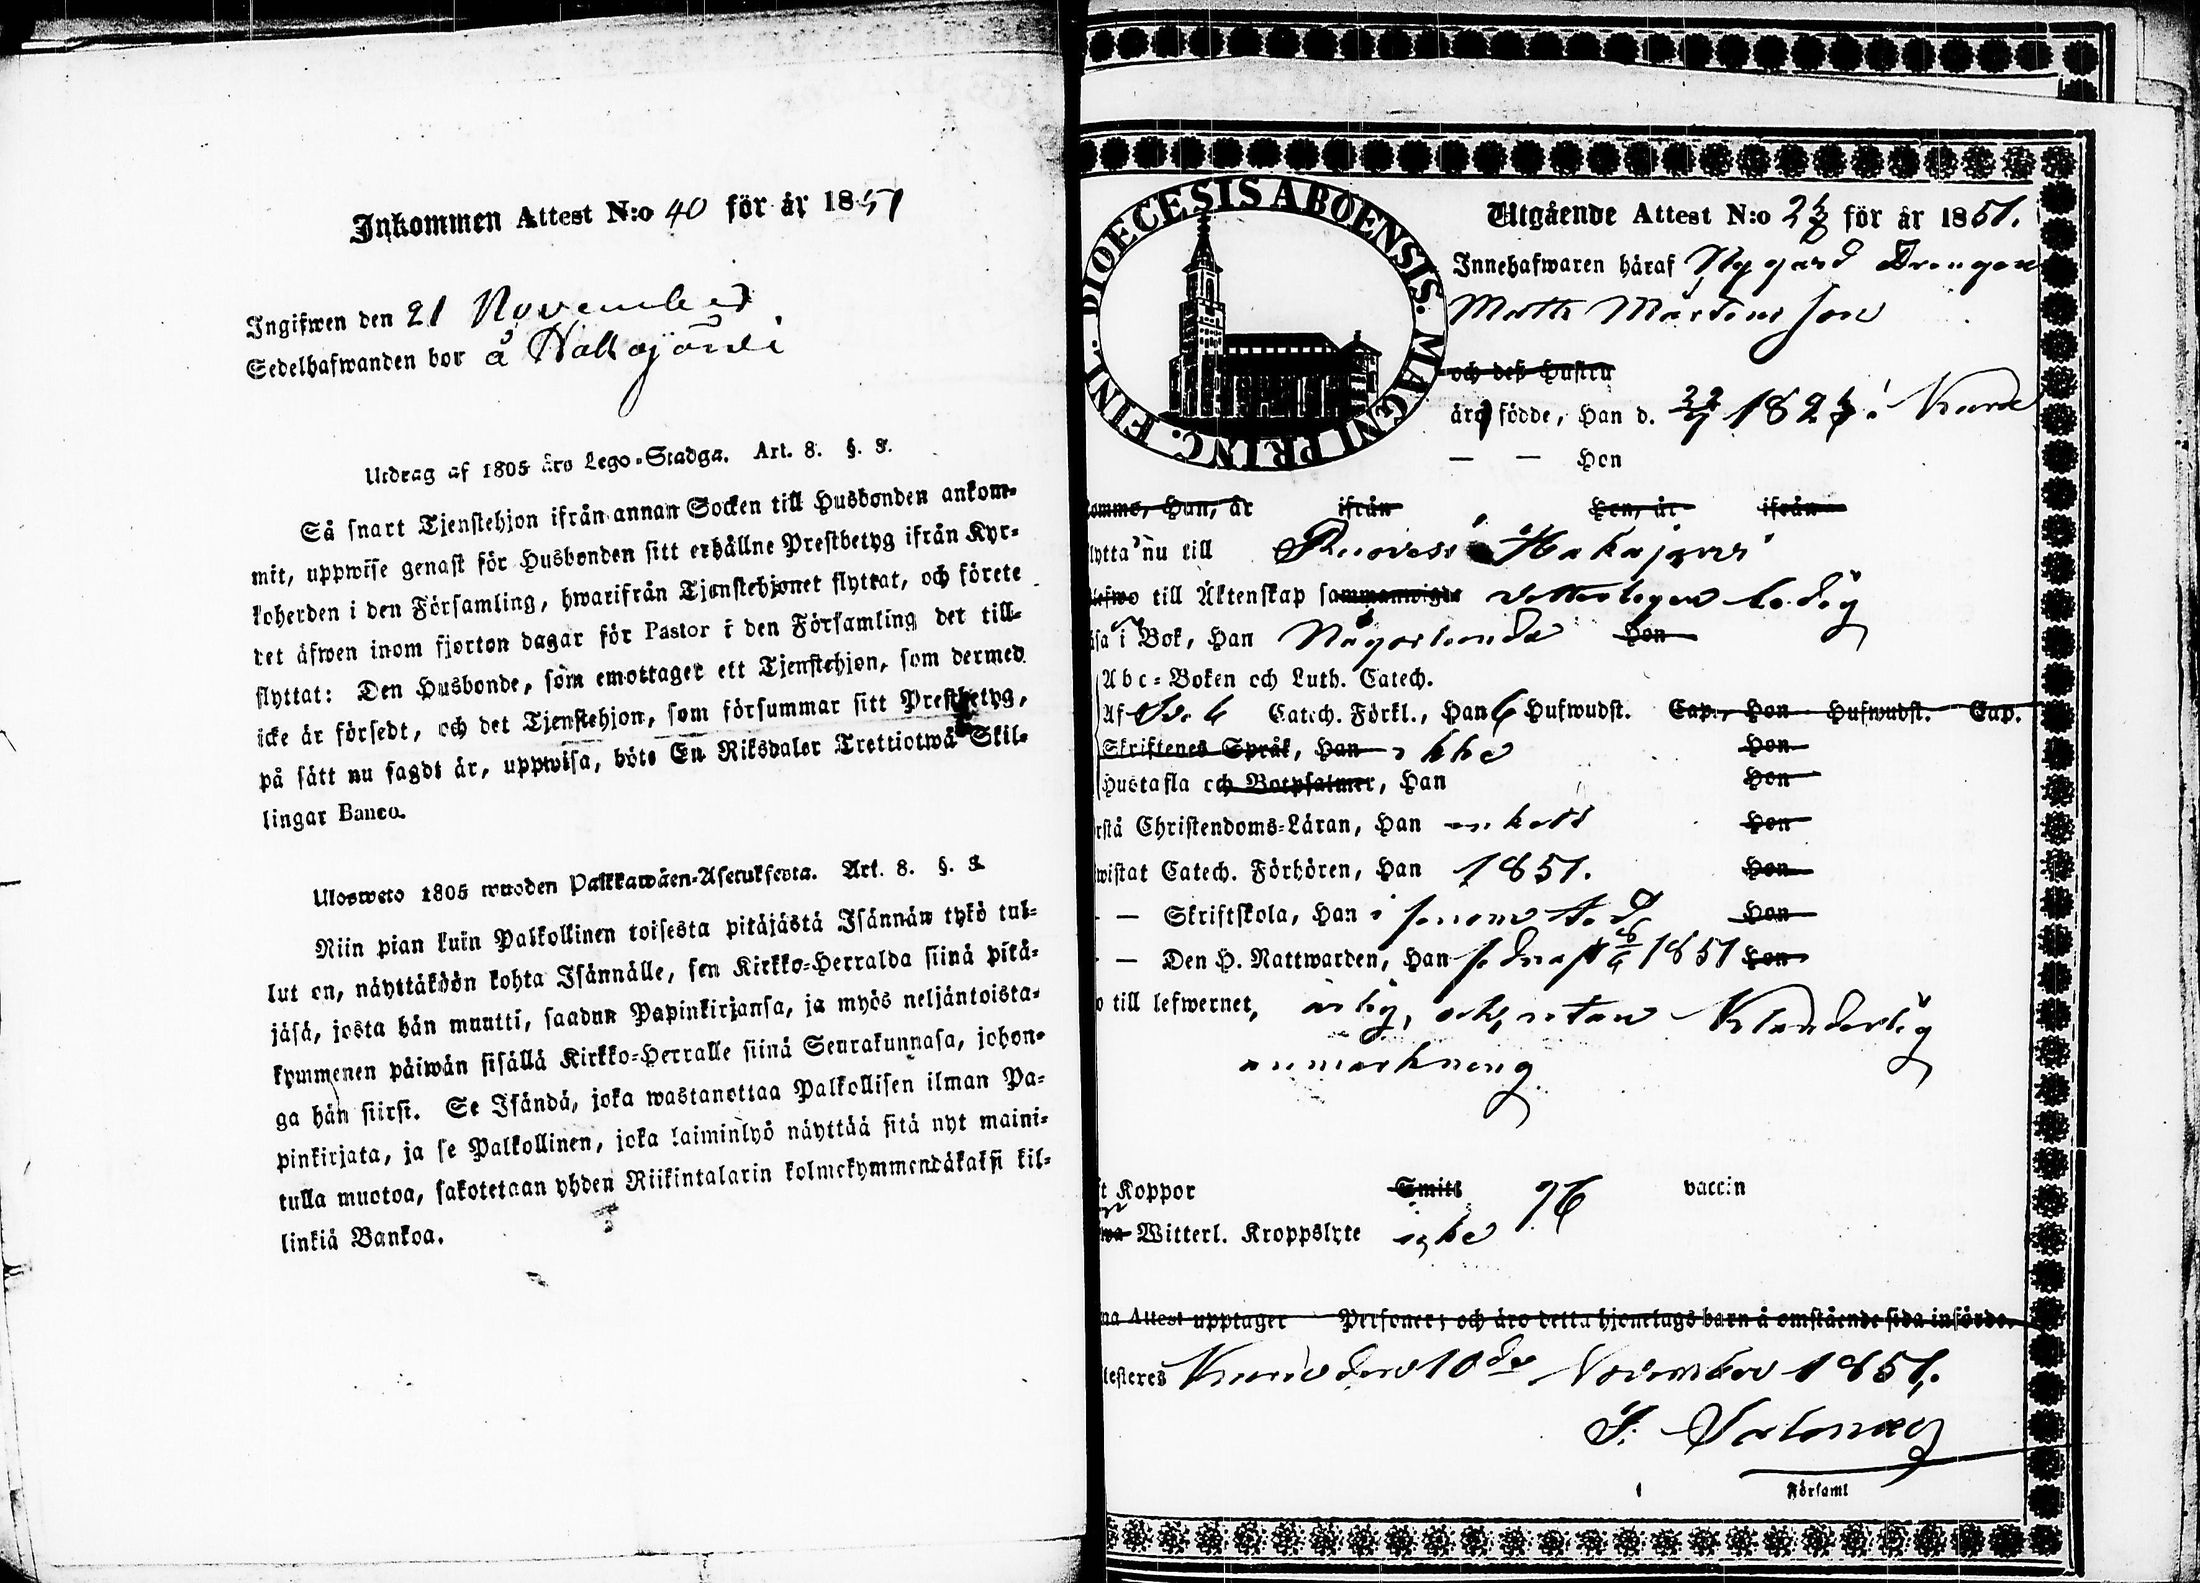 Inkommen Attest N:o 40 för år 1851
Ingifwen den 21 November
Sedelhafwanden bor å Hakojärvi
Utdrag af 1805 års Lego-Stadga. Art. 8. §. 3.
Så snart Tjenstehjon ifrån annan Socken till Husbonden ankom-
mit, uppwise genast för Husbonden sitt erhållne Prestbetyg ifrån Kyr-
koherden i den Församling, hwarifrån Tjenstehjonet flyttat, och förete
det äfwen inom fjorton dagar för Pastor i den Församling det till-
flyttat: Den Husbonde, som emottaget ett Tjenstehjon, som dermed
icke är försedt, och det Tjenstehjon, som försummar sitt Prestbetyg,
på sätt nu sagdt är, uppwisa, böte En Riksdaler Trettiotwå Skil-
lingar Banco.
Ulosweto 1805 wuoden Palkkawäen-Asetuksesta. Art. 8. §. 3.
Niin pian kuin Palkollinen toisesta pitäjästä Isännän tykö tul-
lut on, näyttäköön kohta Isännälle, sen Kirkko-Herralda siinä pitä-
jäsä, josta hän muutti, saadun Papinkirjansa, ja myös neljäntoista-
kymmenen päiwän sisällä Kirkko-Herralle siinä Seurakunnasa, johon-
ga hän siirsi. Se Isändä, joka wastanottaa Palkollisen ilman Pa-
pinkirjata, ja se Palkollinen, joka laiminlyö näyttää sitä nyt maini-
tulla muotoa, sakotetaan yhden Riikintalarin kolmekymmendäkaksi kil-
linkiä Bankoa.
DIOECESIS ABOENSIS. MAGNI PRINC. FINL.
Utgående Attest N:o för år 1851.
Innehafwaren häraf Nygård Drengen
Matts Mårtensson
och deß Hustru
äro födde, Han d. 22 182 i Kuru
— — Hon
komme, Han, år ifrån Hon, år ifrån
flytta nu till Ruovesi Hakajärvi
till Äktenskap sammanwigde ledig
läsa i Bok, Han Någorlunda Hon
Abc-Boken och Luth. Catech.
Af Catech. Förkl., Han 6 Hufwudst. Cap., Hon Hufwudst. Cap.
Skriftenes Språk, Han icke Hon
Hustafla och Botpsalmer, Han Hon
förstå Christendoms-Läran, Han enkelt Hon
bewistat Catech. Förhören, Han 1851. Hon
— — Skriftskola, Han i Hon
— — Den H. Nattwarden, Han sednast 1851 Hon
till lefwernet, ärlig, och utan Klanderlig
anmärkning
Koppor Smitt vaccin
Witterl. Kroppslyte icke
Attest upptager Personer; och äro detta hjonelags barn å omstående sida införde.
Kuru den 10de November 1851.
Församl